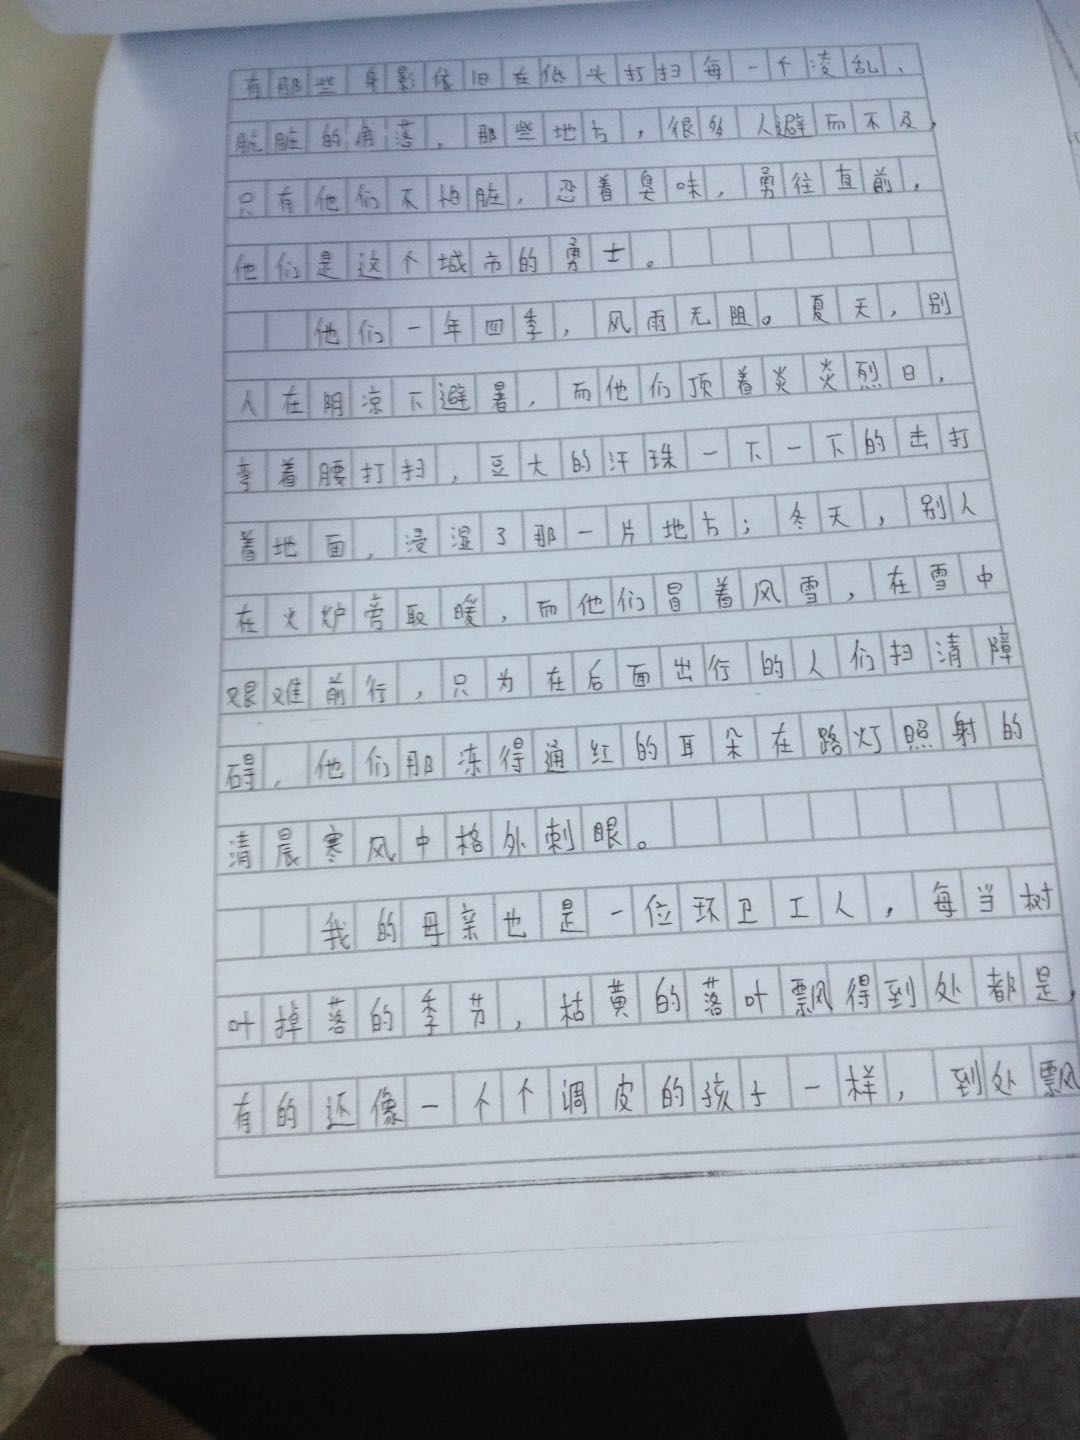 有那些身影依旧在低头打扫每一个凌乱、
肮脏的角落，那些地方，很多人避而不及，
只有他们不怕脏，忍着臭味，勇往直前，
他们是这个城市的勇士。
他们一年四季，风雨无阻。夏天，别
人在阴凉下避暑，而他们顶着炎炎烈日，
弯着腰打扫，豆大的汗珠一下一下的击打
着地面，浸湿了那一片地方；冬天，别人
在火炉旁取暖，而他们冒着风雪，在雪中
艰难前行，只为在后面出行的人们扫清障
碍，他们那冻得通红的耳朵在路灯照射的
清晨寒风中格外刺眼。
我的母亲也是一位环卫工人，每当树
叶掉落的季节，枯黄的落叶飘得到处都是，
有的还像一个个调皮的孩子一样，到处飘